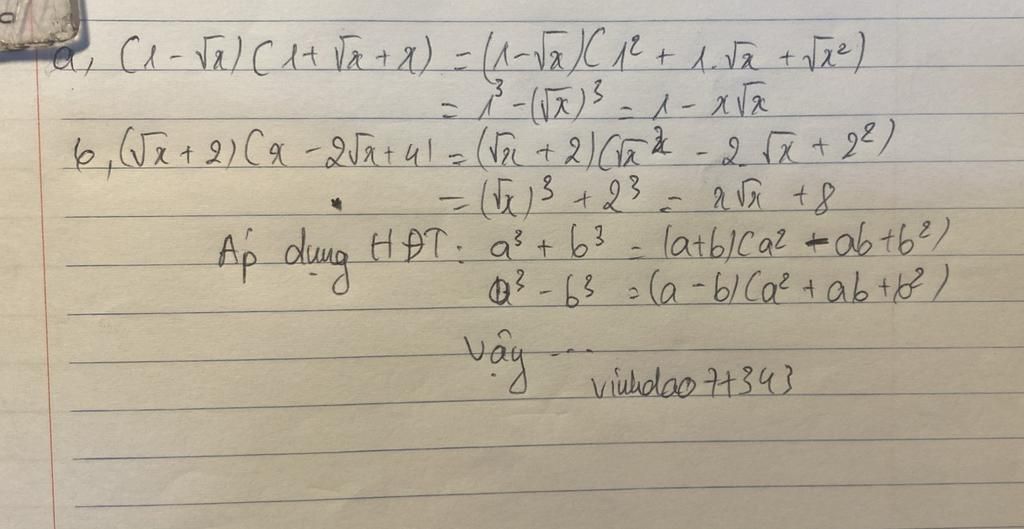 a, (1 - √x)(1 + √x + x) = (1 - √x)(1² + 1.√x + √x²)
= 1³ - (√x)³ = 1 - x√x
b, (√x + 2)(x - 2√x + 4) = (√x + 2)(√x² - 2.√x + 2²)
= (√x)³ + 2³ = x√x + 8
Áp dụng HĐT: a³ + b³ = (a+b)(a² - ab + b²)
a³ - b³ = (a - b)(a² + ab + b²)
Vậy ...
vinhdao7+343